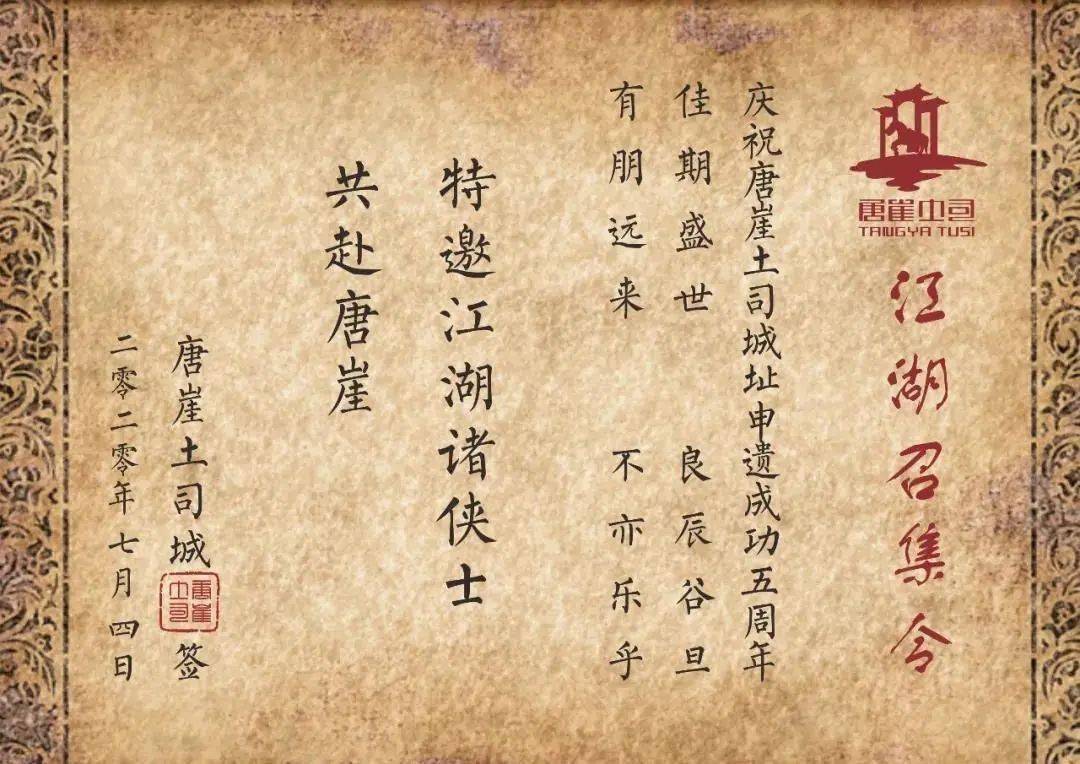 唐崖土司
TANGYA TUSI
江湖召集令
庆祝唐崖土司城址申遗成功五周年
佳期盛世 良辰谷旦
有朋远来 不亦乐乎
特邀江湖诸侠士
共赴唐崖
唐崖土司城 签
唐崖土司
二零二零年七月四日